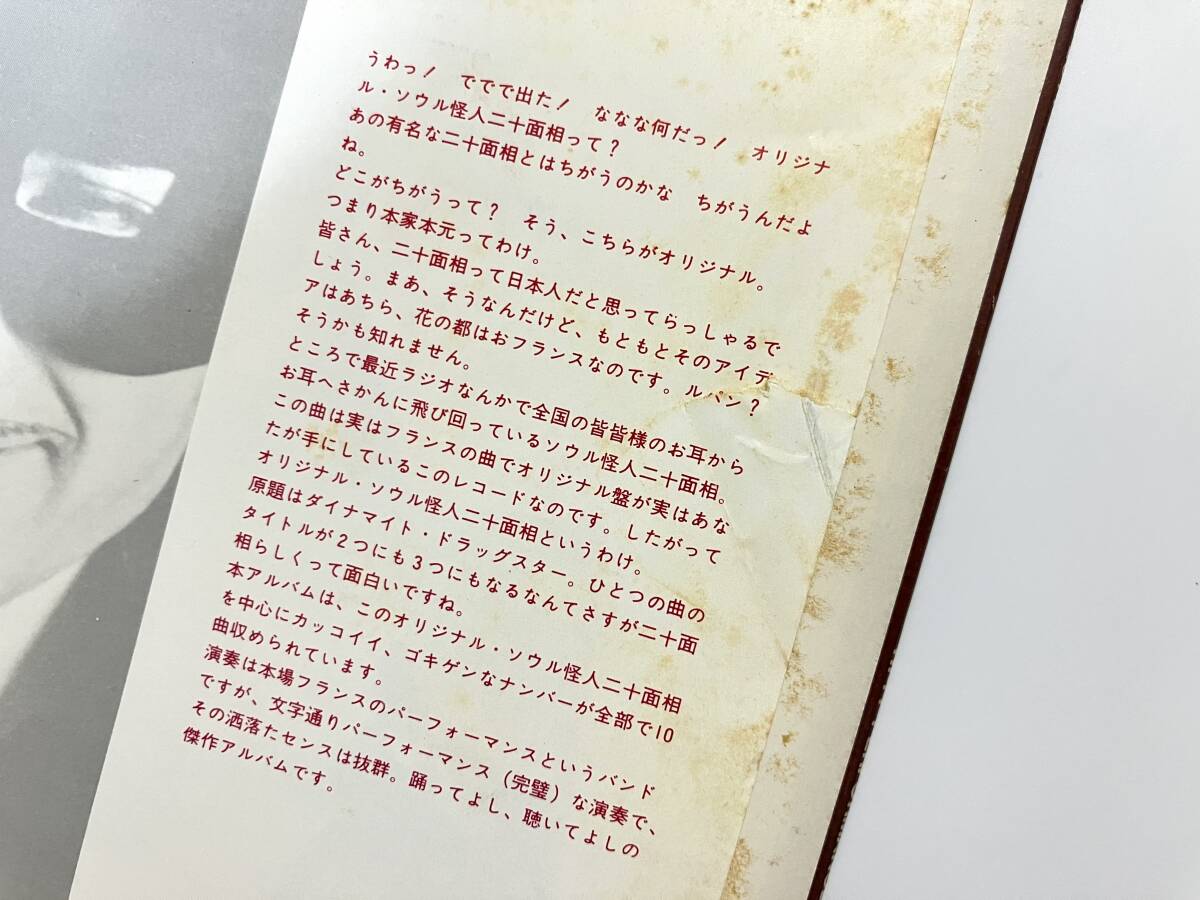 うわっ！　ででで出た！　ななな何だっ！　オリジナ
ル・ソウル怪人二十面相って？
あの有名な二十面相とはちがうのかな　ちがうんだよ
ね。
どこがちがうって？　そう、こちらがオリジナル。
つまり本家本元ってわけ。
皆さん、二十面相って日本人だと思ってらっしゃるで
しょう。まあ、そうなんだけど、もともとそのアイデ
アはあちら、花の都はおフランスなのです。ルパン？
そうかも知れません。
ところで最近ラジオなんかで全国の皆皆様のお耳から
お耳へさかんに飛び回っているソウル怪人二十面相。
この曲は実はフランスの曲でオリジナル盤が実はあな
たが手にしているこのレコードなのです。したがって
オリジナル・ソウル怪人二十面相というわけ。
原題はダイナマイト・ドラッグスター。ひとつの曲の
タイトルが2つにも3つにもなるなんてさすが二十面
相らしくって面白いですね。
本アルバムは、このオリジナル・ソウル怪人二十面相
を中心にカッコイイ、ゴキゲンなナンバーが全部で10
曲収められています。
演奏は本場フランスのパーフォーマンスというバンド
ですが、文字通りパーフォーマンス（完璧）な演奏で、
その洒落たセンスは抜群。踊ってよし、聴いてよしの
傑作アルバムです。